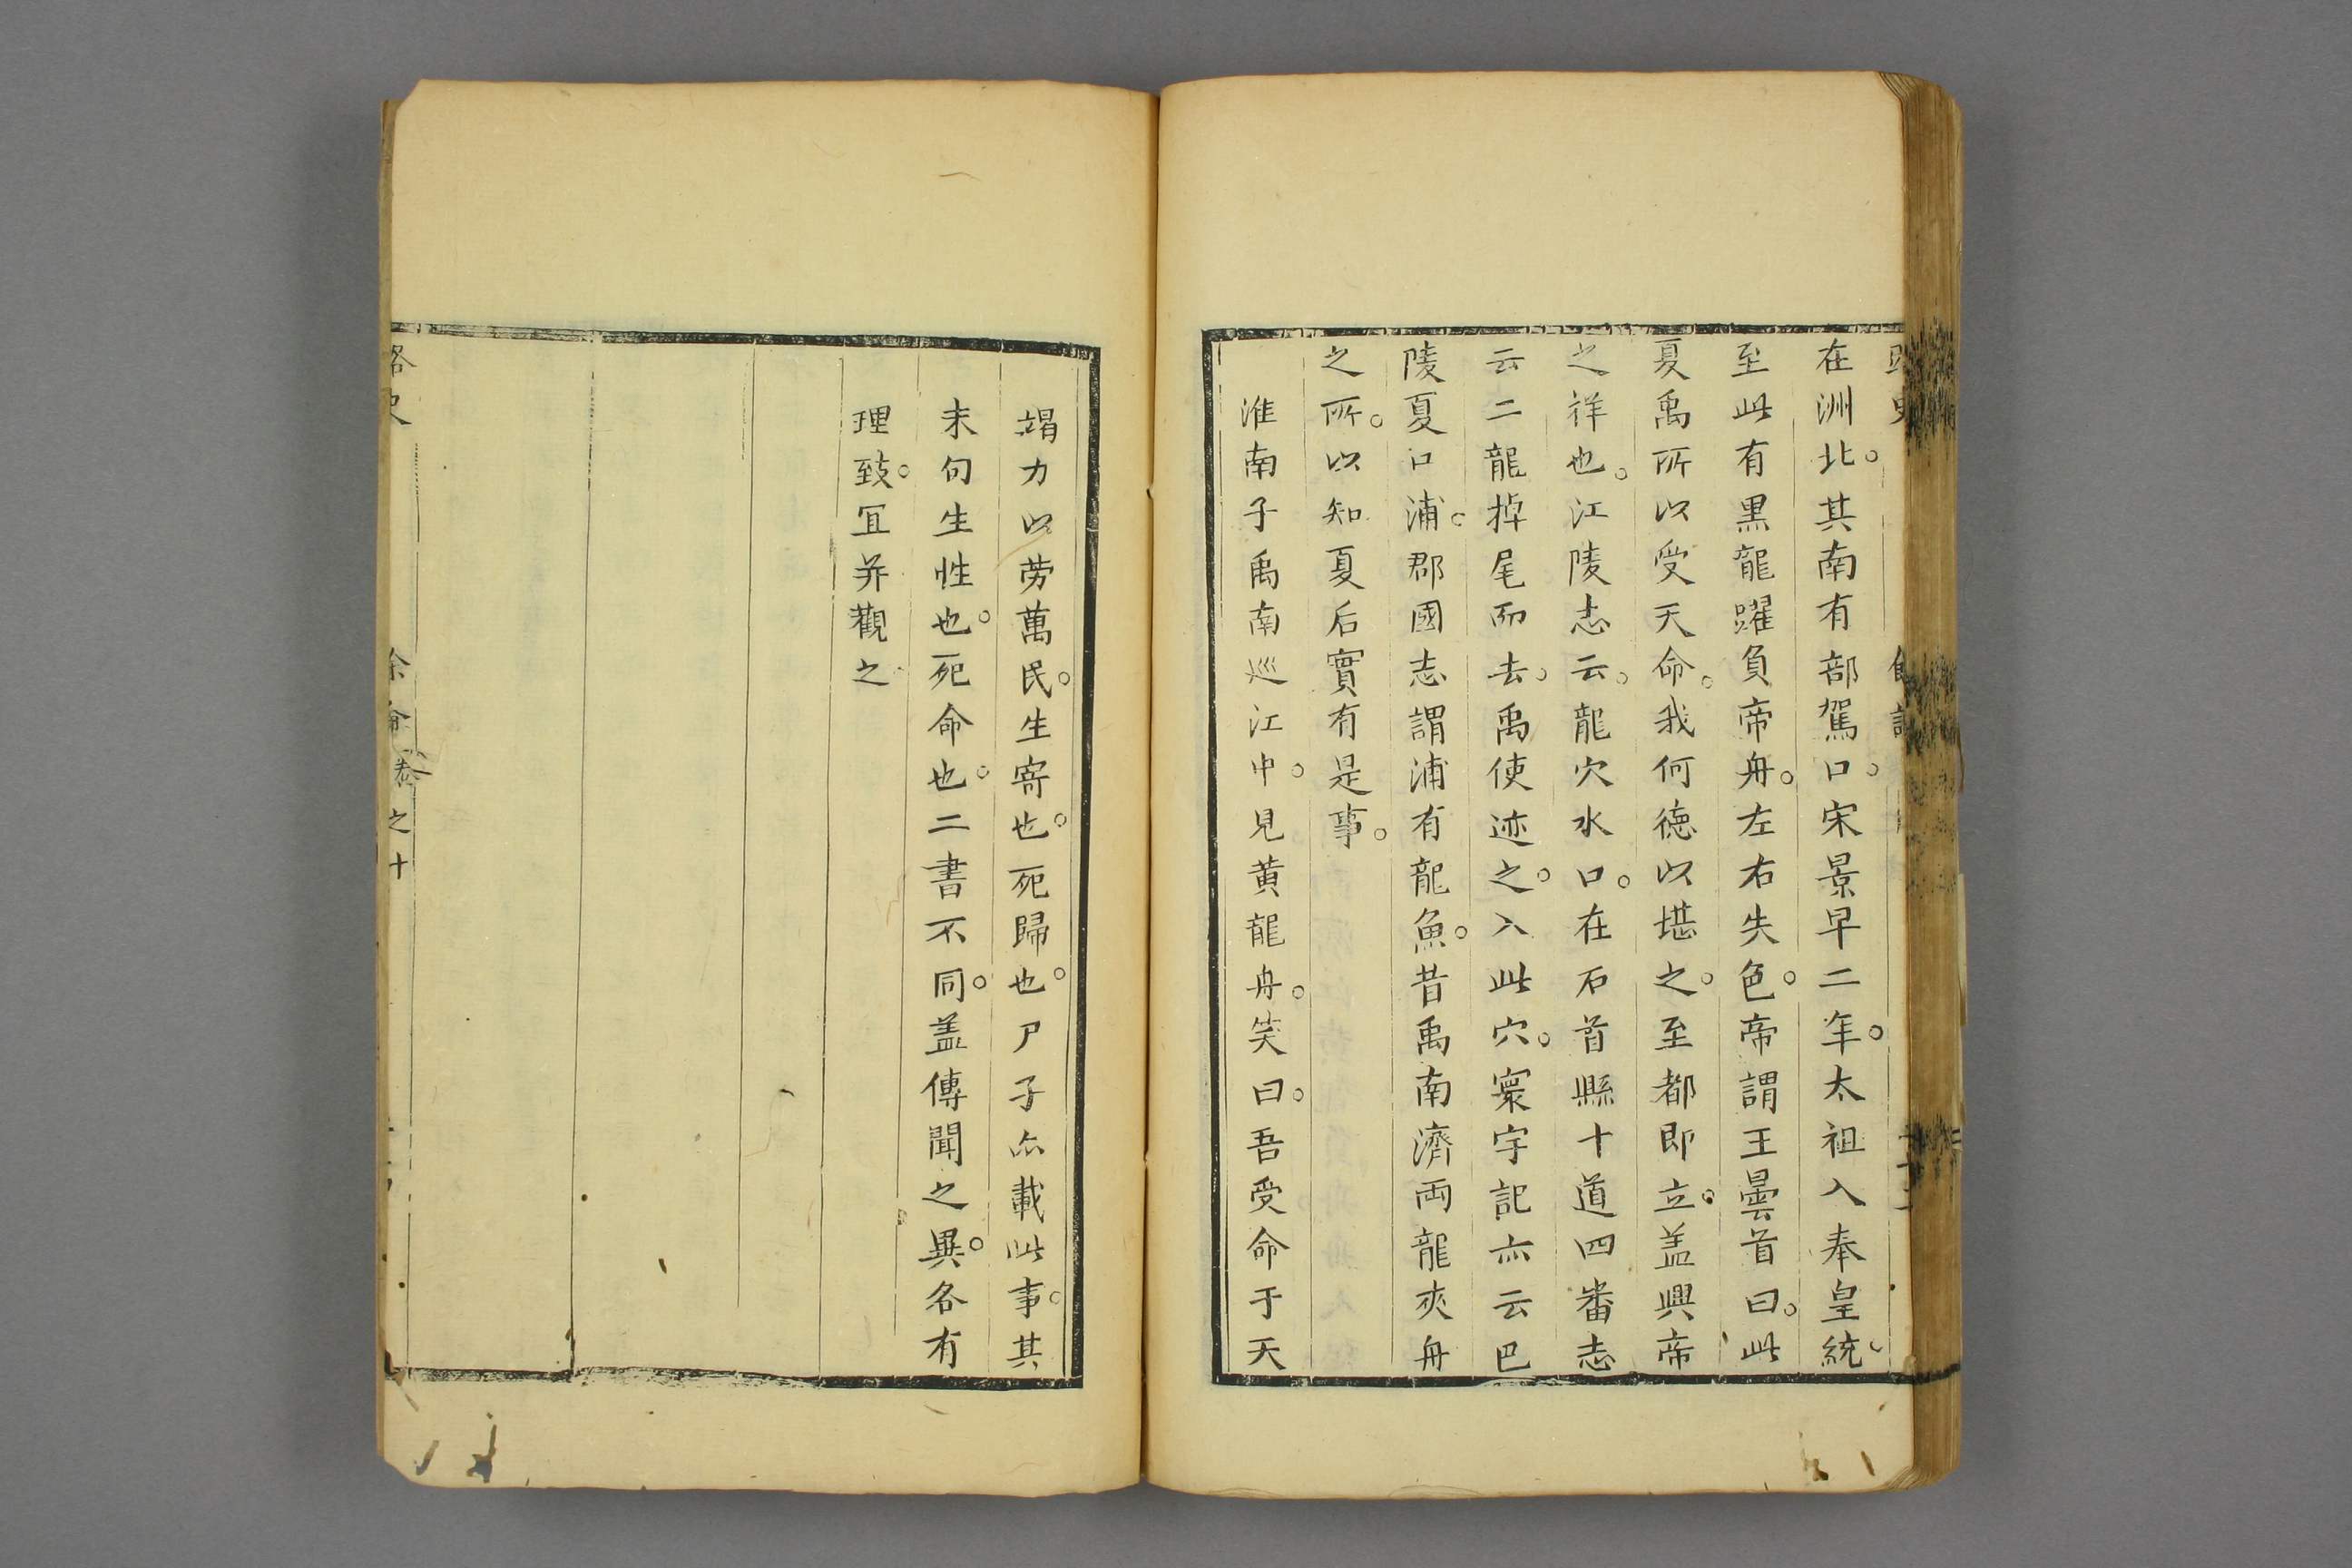 在洲北。其南有部駕口。宋景早二年。太祖入奉皇統。
至此有黒龍躍負帝舟。左右失色。帝謂王曇首曰。此
夏禹所以受天命。我何德以堪之。至都即立。盖興帝
之祥也。江陵志云。龍穴水口。在石首縣十道四畨志
云二龍掉尾而去。禹使迹之。入此穴。寰宇記亦云巴
陵夏口浦。郡國志謂浦有龍魚。昔禹南濟兩龍夾舟
之所。以知夏后實有是事。
淮南子禹南巡江中。見黄龍舟。笑曰。吾受命于天
竭力以劳萬民。生寄也。死歸也。尸子亦載此事。其
末句生性也。死命也。二書不同。盖傳聞之異。各有
理致。冝并觀之
路史
余論卷之十